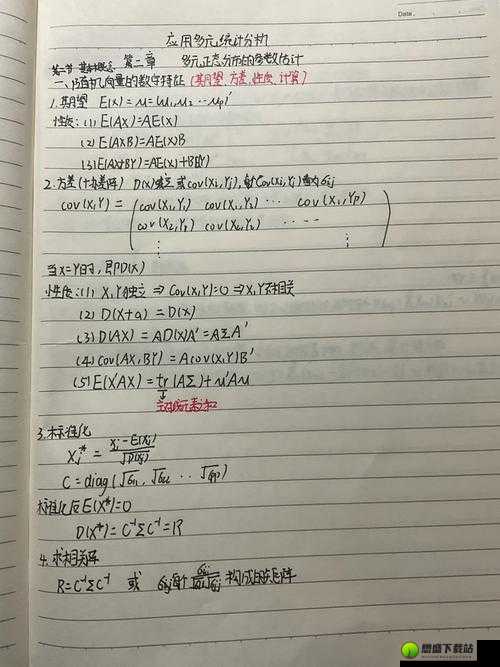 Date.
应用多元统计分析
第一节 基本概念 第二章 多元正态分布的参数估计
一、随机向量的数字特征 (期望、方差、性质、计算)
1.期望 E(X)=μ=(μ₁,μ₂…μp)'
性质:(1) E(AX)=AE(X)
(2) E(AXB)=AE(X)B
(3) E(AX+BY)=AE(X)+BE(Y)
2.方差(协差阵) D(X) 或cov(Xi,Yj),
cov(X,Y)= ( cov(X₁,Y₁) cov(X₁,Y₂) … cov(X₁,Yp)
cov(X₂,Y₁) cov(X₂,Y₂) ……
⋮ ⋮ )
当X=Y时,即D(X)
性质:(1) X,Y独立 ⇒ Cov(X,Y)=0 ⇒ X,Y不相关
(2) D(X+a)=D(X)
(3) D(AX)=AD(X)A'=AΣA'
(4) Cov(AX,BY)=Acov(X,Y)B'
(5) E(X'AX)=tr(AΣ)+μ'Aμ
主对角元素之和
3.标准化
Xj*=(Xj-E(Xj))/√D(Xj)
C=diag(√σ₁₁,√σ₂₂…√σpp)
标准化后E(X*)=0
D(X*)=C⁻¹ΣC⁻¹=R
4.求相关阵
R=C⁻¹ΣC⁻¹ 或 构成的矩阵
想盛下载站